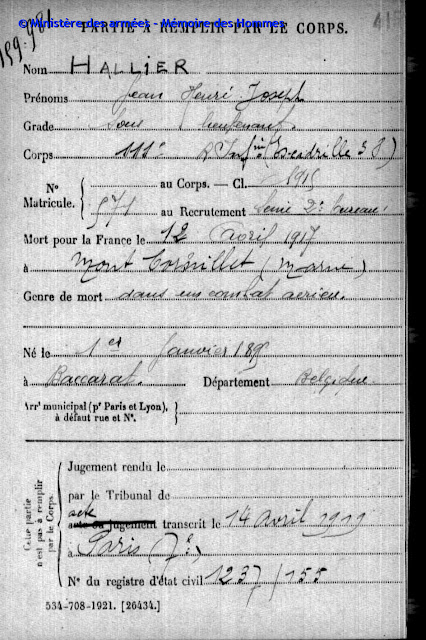 © Ministère des armées - Mémoire des Hommes
PARTIE A REMPLIR PAR LE CORPS.
159.981
Nom HALLIER
Prénoms Jean Henri Joseph
Grade Sous lieutenant.
Corps 111e R Infie (Escadrille 38)
N° Matricule. au Corps. — Cl. 1915
571 au Recrutement Seine 2e Bureau
Mort pour la France le 12 avril 1917
à Mont Cornillet (Marne)
Genre de mort dans un combat aérien.
Né le 1er Janvier 189
à Baccarat. Département Belgique.
Arrt municipal (pr Paris et Lyon),
à défaut rue et N°.
Cette partie n'est pas à remplir par le Corps.
Jugement rendu le
par le Tribunal de
acte
jugement transcrit le 14 avril 1919
à Paris (7e)
N° du registre d'état civil 1237/155
534-708-1921. [26434.]